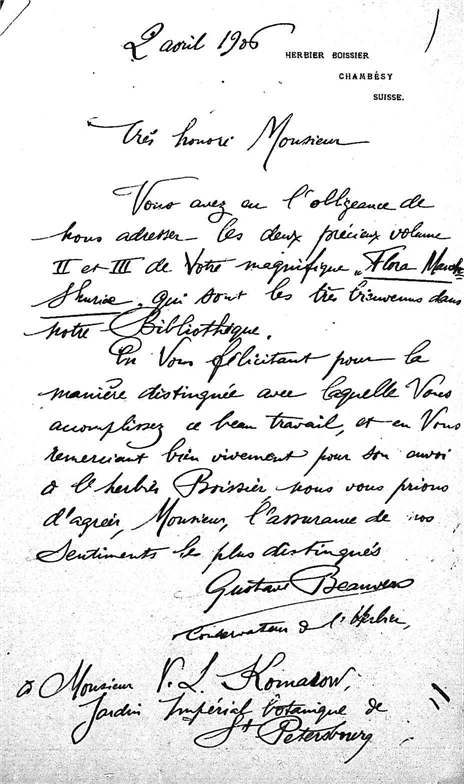 2 avril 1906
HERBIER BOISSIER
CHAMBÉSY
SUISSE.
Très honoré Monsieur
Vous avez eu l'obligeance de
nous adresser les deux précieux volume
II et III de Votre magnifique „Flora Mansh-
shuriae„ qui sont les très bienvenus dans
notre Bibliothèque.
En Vous félicitant pour la
manière distinguée avec laquelle Vous
accomplissez ce beau travail, et en Vous
remerciant bien vivement pour son envoi
à l'herbier Boissier, nous vous prions
d'agréer, Monsieur, l'assurance de nos
Sentiments les plus distingués
Gustave Beauverd
Conservateur de l'Herbier,
à Monsieur V. L. Komarow,
Jardin Impérial botanique de
St Petersbourg